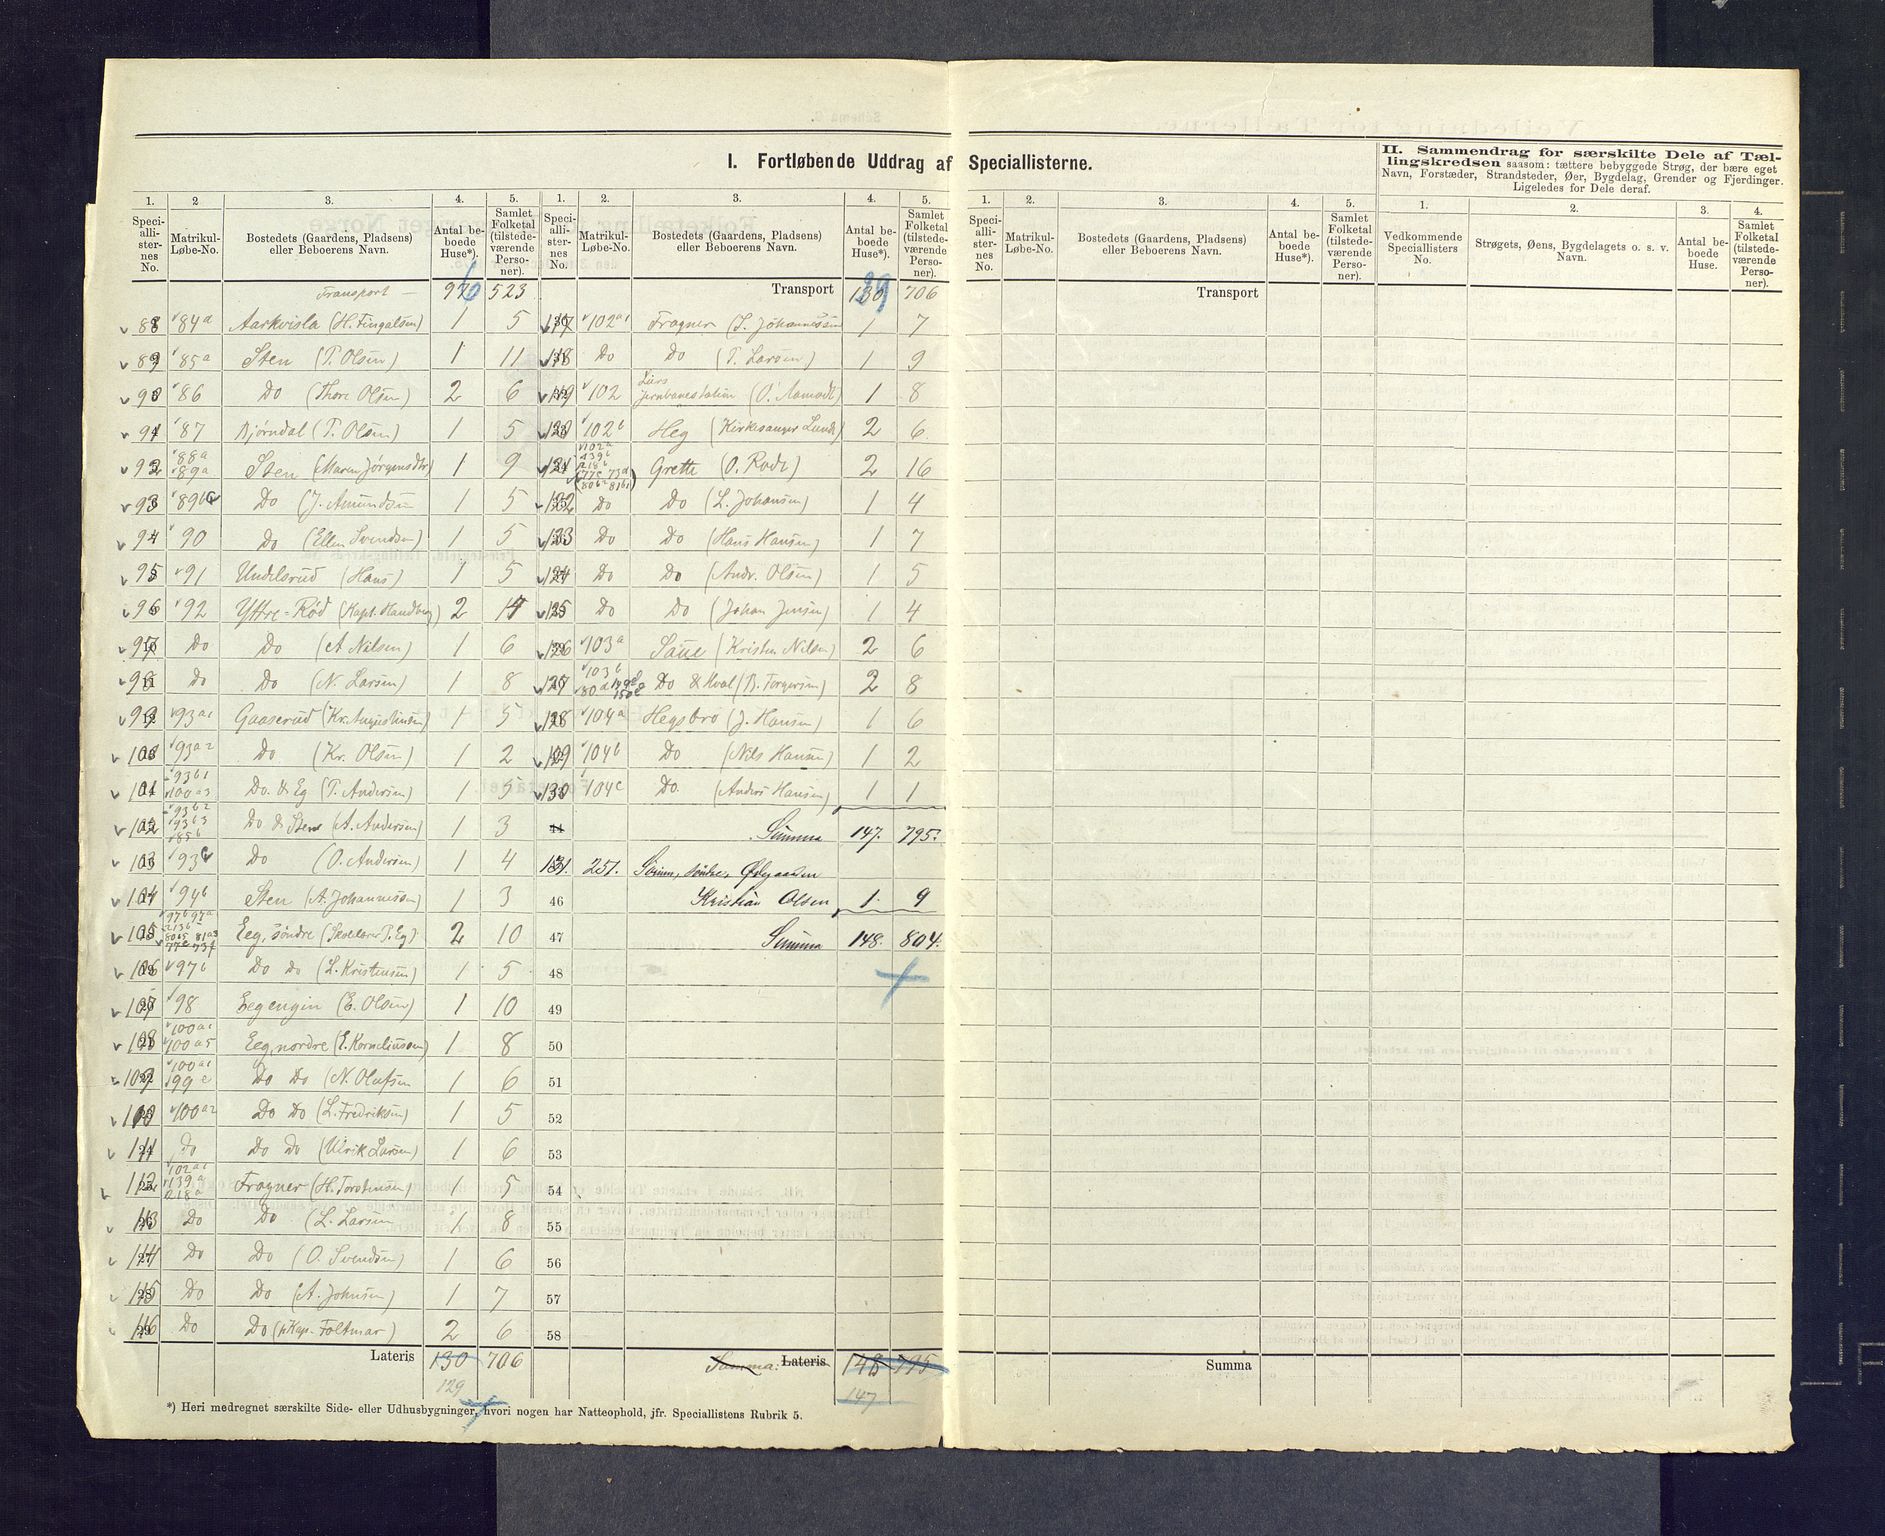 I. Fortløbende Uddrag af Speciallisterne.
II. Sammendrag for særskilte Dele af Tæl-
lingskredsen saasom: tættere bebyggede Strøg, der bære eget
Navn, Forstæder, Strandsteder, Øer, Bygdelag, Grender og Fjerdinger.
Ligeledes for Dele deraf.
1. 2 3. 4. 5. 1. 2. 3. 4. 5. 1. 2. 3. 4. 5. 1. 2. 3. 4.
Speci-allister-nes No. Matrikul-Løbe-No. Bostedets (Gaardens, Pladsens) eller Beboerens Navn. Antal be-boede Huse*). Samlet Folketal (tilstede-værende Perso-ner).
Speci-allister-nes No. Matrikul-Løbe-No. Bostedets (Gaardens, Pladsens) eller Beboerens Navn. Antal be-boede Huse*). Samlet Folketal (tilstede-værende Perso-ner).
Speci-allister-nes No. Matrikul-Løbe-No. Bostedets (Gaardens, Pladsens) eller Beboerens Navn. Antal be-boede Huse*). Samlet Folketal (tilstede-værende Perso-ner).
Vedkommende Speciallisters No. Strøgets, Øens, Bygdelagets o. s. v. Navn. Antal be-boede Huse. Samlet Folketal (tilstede-værende Perso-ner).
Transport 523
88 84a Aarkvisla (H. Fingalsen) 1 5
89 85a Sten (T. Olsen) 1 11
90 86 Do (Thore Olsen) 2 6
91 87 Bjørndal (T. Olsen) 1 5
92 88a 89a Sten (Maren Jørgensdtr) 1 9
93 Do (J. Amundsen 1 5
94 90 Do (Ellen Svendsen) 1 5
95 91 Undelsrud (Hans) 1 5
96 92 Yttre-Rød (Kapt. Handberg) 2
97 Do Do (A Nilsen) 1 6
98 Do Do (N. Larsen) 1 8
99 93a1 Gaaserud (Kr. Augustinsen) 1 5
100 93a2 Do (Kr. Olsen) 1 2
101 93b1 100a3 Do. & Eg (T. Andersen) 1 5
102 93b2 93b3 85b Do & Sten (A. Andersen) 1 3
103 93c Do (O. Andersen) 1 4
104 94b Sten (A. Johannesen) 1 3
105 Eeg, søndre (Skolelærer T. Eg). 2 10
106 97b Do Do (L. Kristensen) 1 5
107 98 Eegengin (E. Olsen) 1 10
108 100a1 100a5 Eeg, nordre (E. Korneliusen) 1 8
109 100a1 199e Do Do (N. Olafsen 1 6
110 100a2 Do Do (L. Fredriksen) 1 5
111 Do Do Do (Ulrik Larsen) 1 6
112 102a1 139a 218a Fragner (H. Torstensen) 1 5
113 Do Do (L. Larsen 1 8
114 Do Do (O. Svendsen) 1 6
115 Do Do (A. Johnsen) 1 7
116 Do Do (Kap. Foltmar) 2 6
Lateris 130 706
129
Transport 130 706
117 102a1 Fragner (L. Johannessen 1 7
118 Do Do (T. Larsen) 1 9
119 102 Jernbanestation (O. Aamodt) 1 8
120 102b Heg (Kirkesanger Lund) 2 6
121 102a 139b 218b Grette (O. Rode) 2 16
122 Do Do (L. Johansen) 1 4
123 Do Do (Hans Hansen) 1 7
124 Do Do (Andr. Olsen) 1 5
125 Do Do (Johan Jensen) 1 4
126 103a Saue (Kristen Nilsen) 2 6
127 103b Do & Hval (B. Torgersen) 2 8
128 104a Hegsbro (J. Hansen) 1 6
129 104b Do (Nils Hansen) 1 2
130 104c Do. (Anders Hansen) 1 1
44 Summa 147. 795.
131. 251. søndre, Ødegaarden
46 Kristian Olsen 1. 9
47 Summa 148. 804.
48
49
50
51
52
53
54
55
56
57
58
Summa. Lateris 148 795
147
Transport
Summa
*) Heri medregnet særskilte Side- eller Udhusbygninger, hvori nogen har Natteophold, jfr. Speciallistens Rubrik 5.